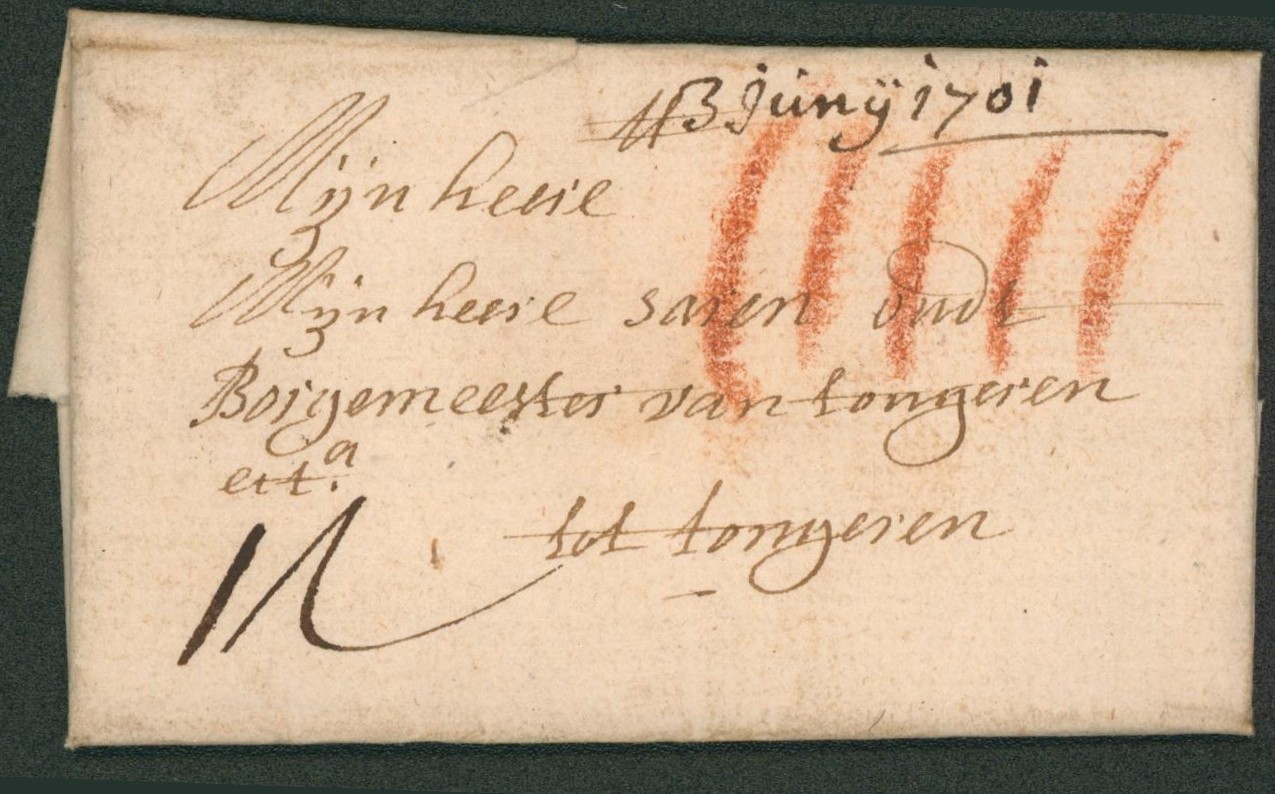 13 Junÿ 1701
Mijn heere
Mijn heere saren oudt
Borgemeester van tongeren
ett.a
tot tongeren